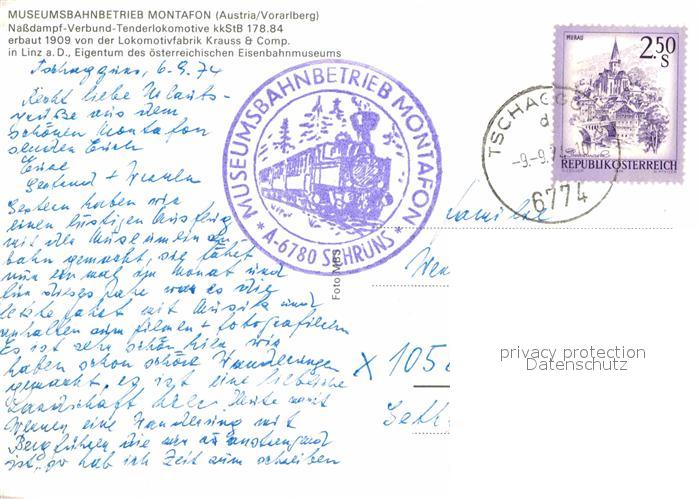 MUSEUMSBAHNBETRIEB MONTAFON (Austria/Vorarlberg)
Naßdampf-Verbund-Tenderlokomotive kkStB 178.84
erbaut 1909 von der Lokomotivfabrik Krauss & Comp.
in Linz a.D., Eigentum des österreichischen Eisenbahnmuseums
Tschagguns, 6.9.74
Recht liebe Urlaubs-
grüße aus dem
schönen Montafon
senden Euch
Gestern haben wir
einen lustigen Ausflug
mit der Museumseisen
bahn gemacht, sie fährt
nur einmal im Monat und
für dieses Jahr war es die
letzte Fahrt mit Musik und
anhalten zum filmen + fotografieren
Es ist sehr schön hier, wir
haben schon schöne Wanderungen
gemacht, es ist eine liebliche
Landschaft hier. Heute macht
eine Wanderung mit
Bergführer, die mir zu anstrengend
ist, so hab ich Zeit zum schreiben
MUSEUMSBAHNBETRIEB MONTAFON
* A-6780 SCHRUNS *
Foto MBS
MURAU
2.50 S
REPUBLIK ÖSTERREICH
TSCHAGG
d
-9.-9.7
6774
Familie
x 105
privacy protection
Datenschutz